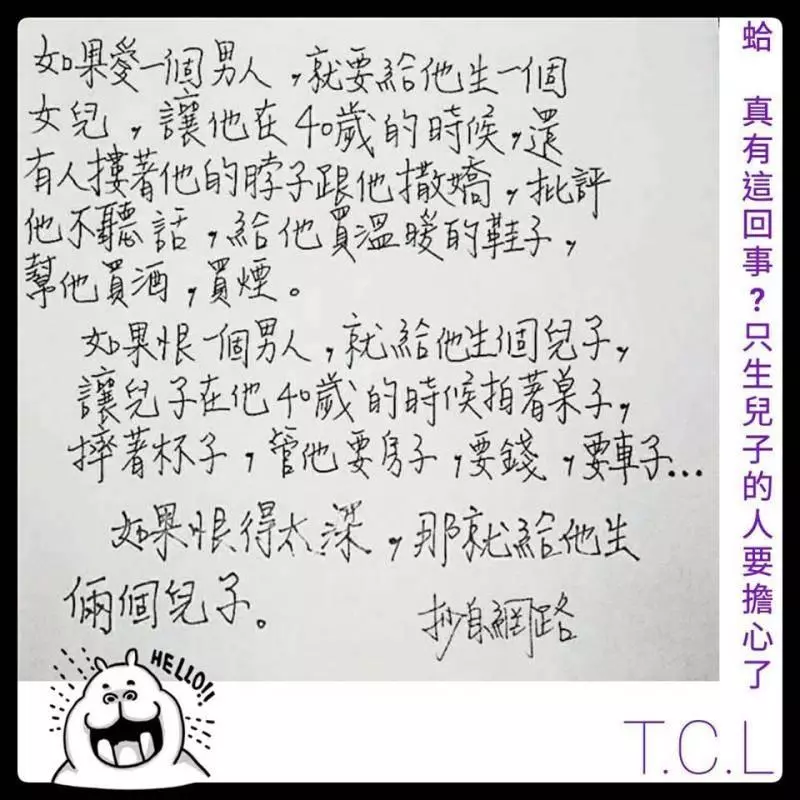 如果愛一個男人，就要給他生一個
女兒，讓他在40歲的時候，還
有人摟著他的脖子跟他撒嬌，批評
他不聽話，給他買溫暖的鞋子，
幫他買酒，買煙。
如果恨一個男人，就給他生個兒子，
讓兒子在他40歲的時候拍著桌子，
摔著杯子，管他要房子，要錢，要車子...
如果恨得太深，那就給他生
倆個兒子。
抄自網路
蛤 真有這回事？只生兒子的人要擔心了
HELLO!!
T.C.L